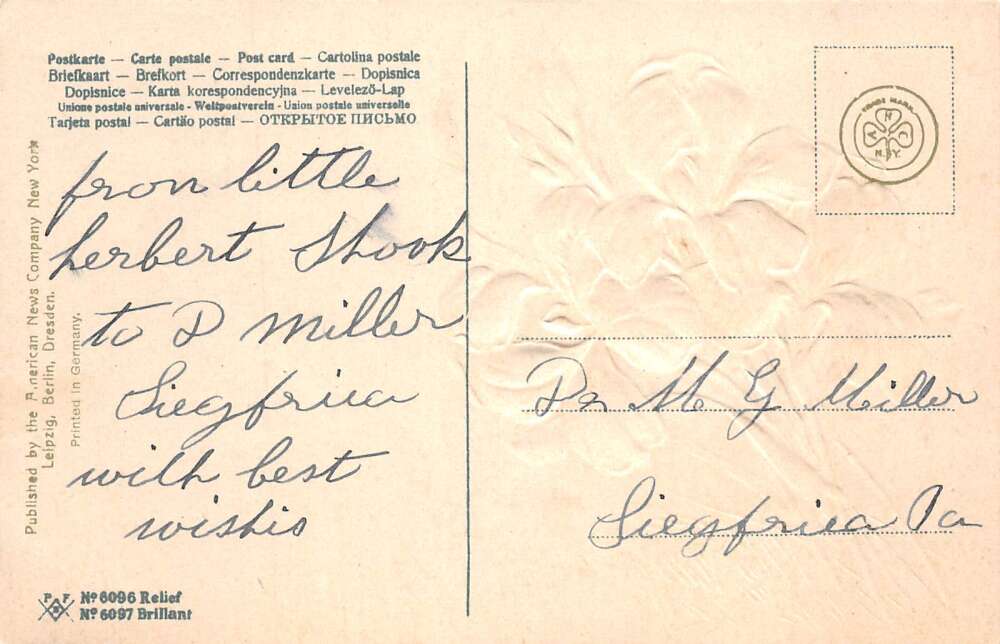 Postkarte — Carte postale — Post card — Cartolina postale
Briefkaart — Brefkort — Correspondenzkarte — Dopisnica
Dopisnice — Karta korespondencyjna — Levelező-Lap
Unione postale universale - Weltpostverein - Union postale universelle
Tarjeta postal — Cartão postal — ОТКРЫТОЕ ПИСЬМО
from little
herbert Shook
to D Miller
Siegfriea
with best
wishis
Published by the American News Company New York
Leipzig, Berlin, Dresden.
Printed in Germany.
P F B
No 6096 Relief
No 6097 Brillant
TRADE MARK
N
V C
N.Y.
Dr M G Miller
Siegfriea Pa